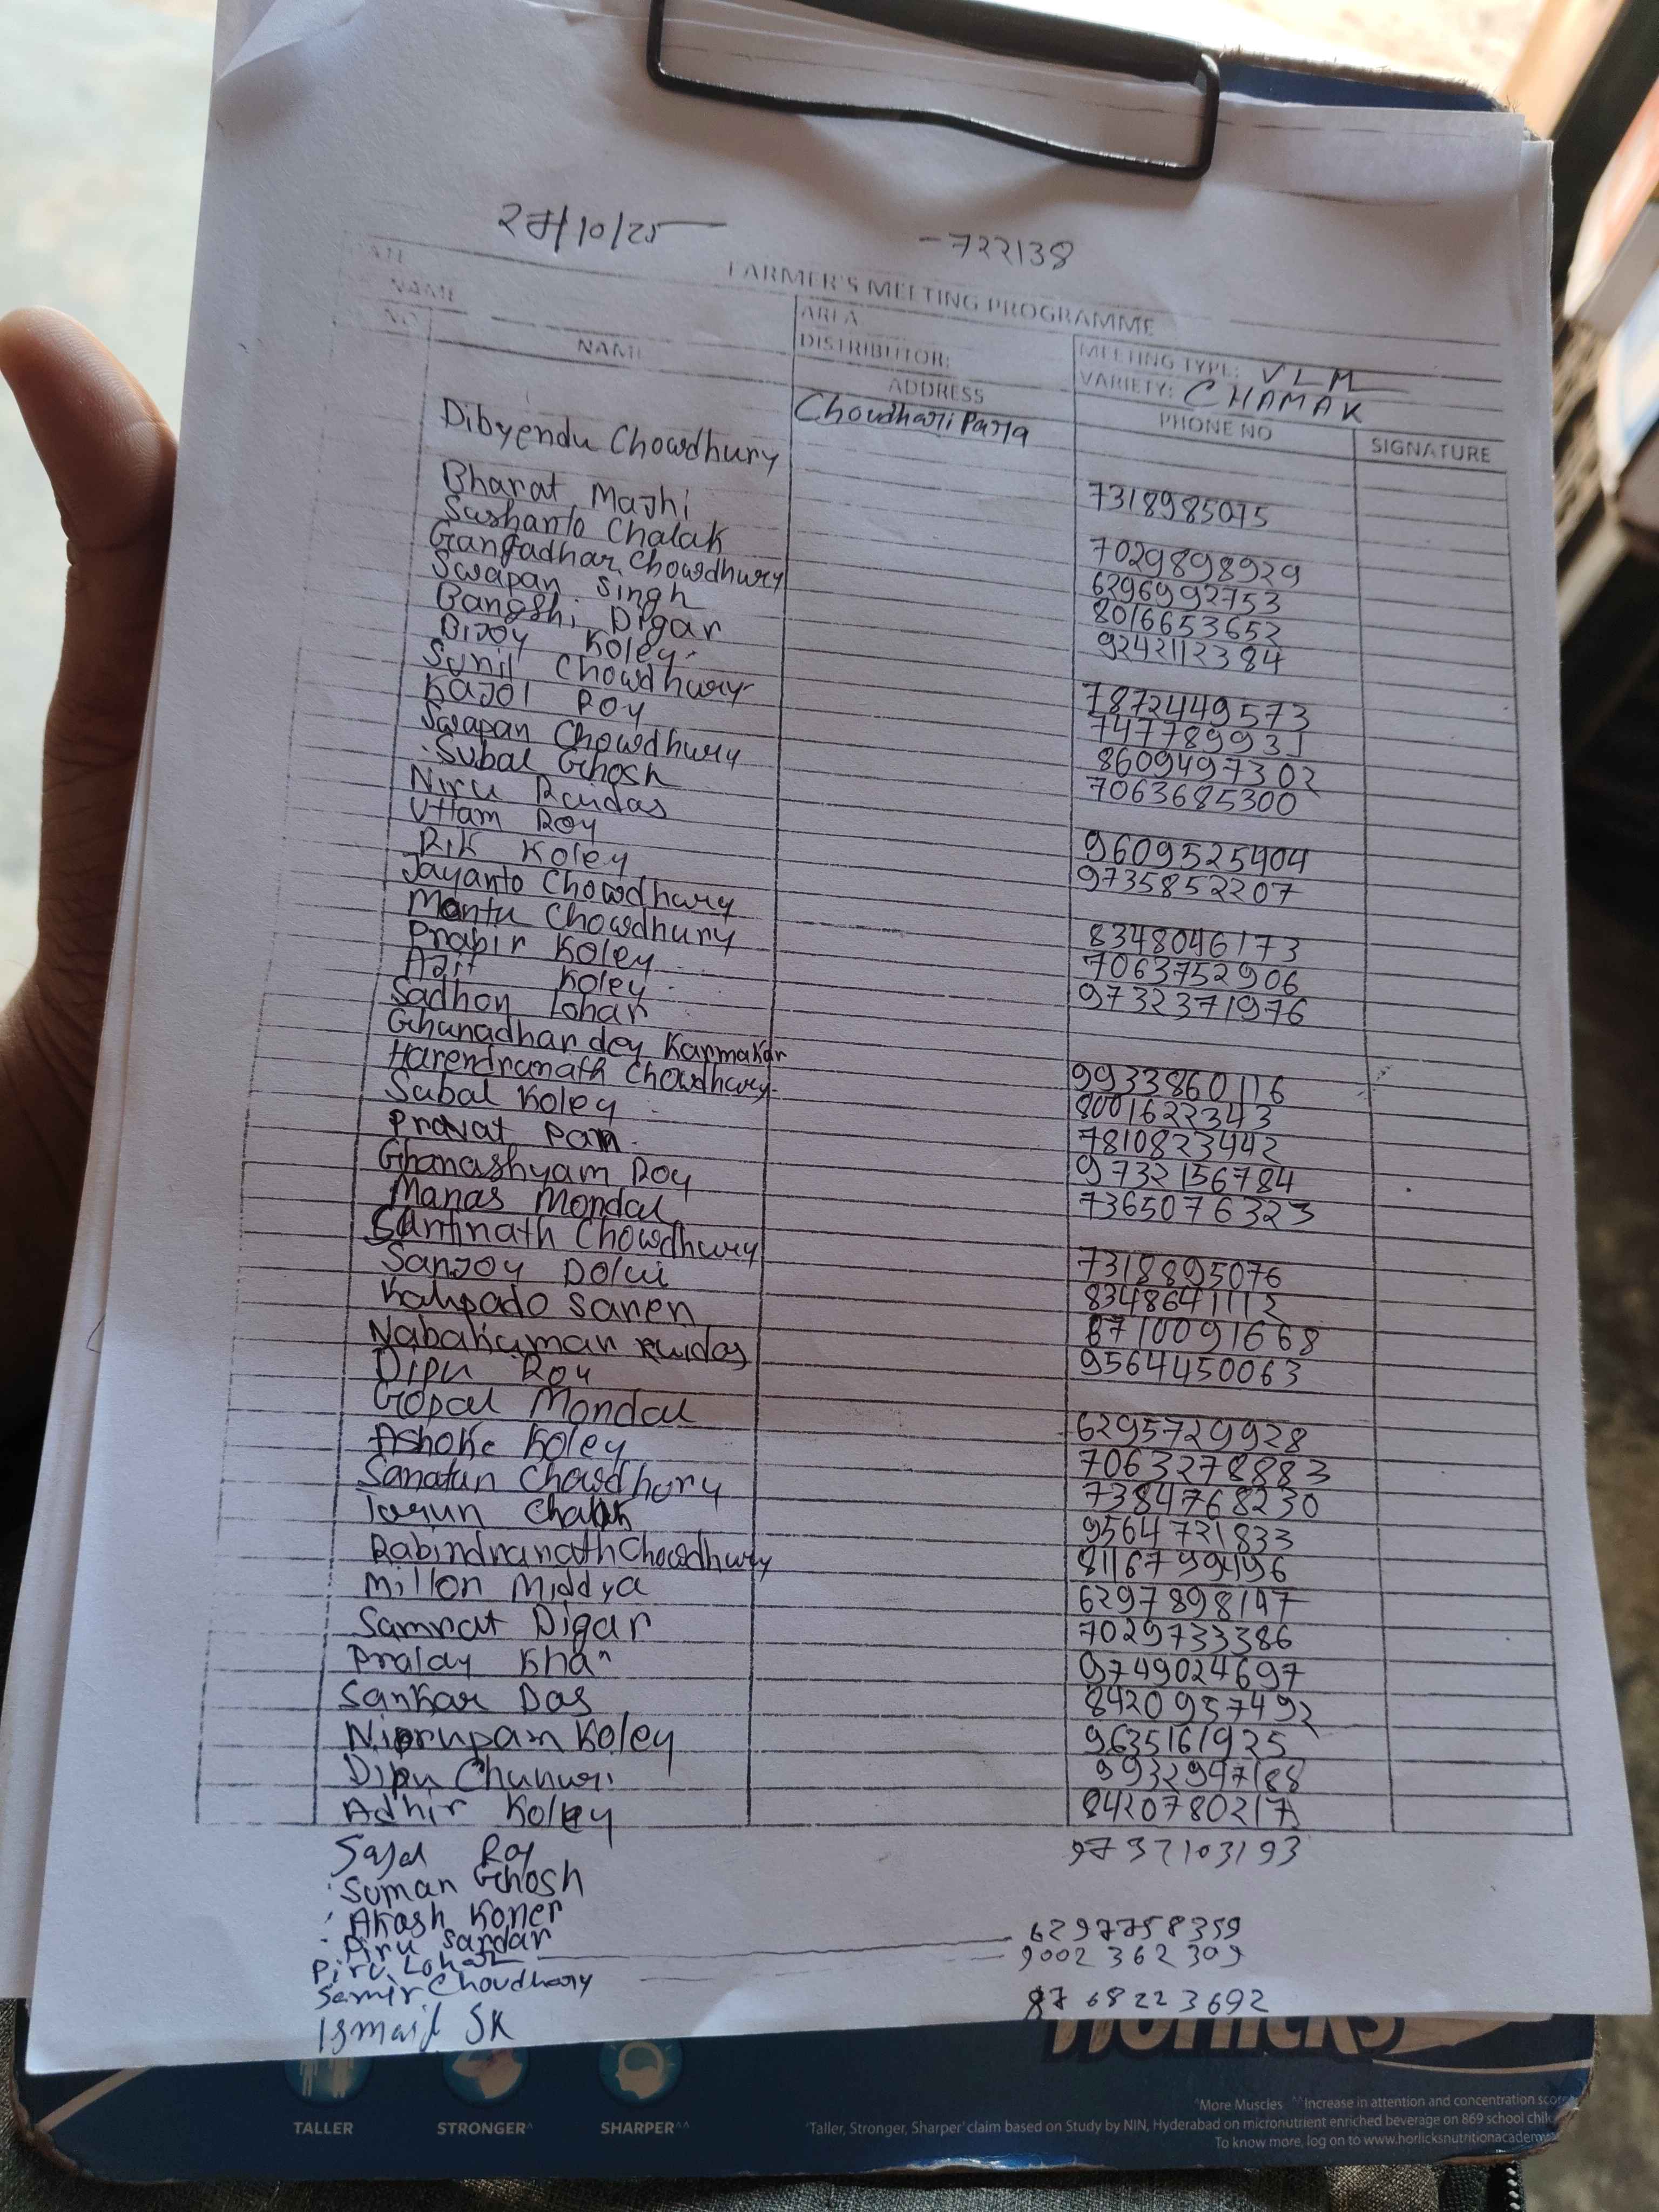 27/10/25 -722138
FARMER'S MEETING PROGRAMME
NAME AREA MEETING TYPE: VLM
DISTRIBUTOR: VARIETY: CHAMAK
NO NAME ADDRESS PHONE NO SIGNATURE
Dibyendu Chowdhury Choudhari Para 7318985075
Bharat Majhi
Sushanto Chalak 7029898929
Gangadhar Chowdhury 6296992753
Swapan Singh 8016653652
Bangshi Digar 9242112384
Bijoy Koley
Sunil Chowdhury 7872449573
Kajol Roy 7477899931
Swapan Chowdhury 8609497302
Subal Ghosh 7063685300
Niru Ruidas
Uttam Roy 9609525404
Rik Koley 9735852207
Jayanto Chowdhury
Mantu Chowdhury 8348046173
Prabir Koley 7063752906
Ajit Koley 9732371976
Sadhon Lohar
Ghanadhar dey Karmakar
Harendranath Chowdhury 9933860116
Subal Koley 8001622343
Pravat Pan 7810823442
Ghanashyam Roy 9732156784
Manas Mondal 7365076323
Santinath Chowdhury
Sanjoy Dolui 7318895076
Kalipado Saren 8348641112
Nabakumar Ruidas 8710091668
Dipu Roy 9564450063
Gopal Mondal
Ashoke Koley 6295729928
Sanatan Chowdhury 7063278883
Tarun Chalak 7384768230
Rabindranath Chowdhury 9564721833
Millon Middya 8116799496
Samrat Digar 6297898147
Pralay Khan 7029733386
Sankar Das 9749024697
Nirupam Koley 8420957492
Dipu Chunuri 9635161925
Adhir Koley 9932947188
8420780217
Roy 9737103193
Suman Ghosh
Akash Koner
Piru Sardar 6297758359
Piru Lohar 9002362309
Samir Choudhary
Ismail SK 8768223692
HORLICKS
TALLER STRONGER^ SHARPER^^
^More Muscles ^^Increase in attention and concentration score
'Taller, Stronger, Sharper' claim based on Study by NIN, Hyderabad on micronutrient enriched beverage on 869 school
To know more, log on to www.horlicksnutritionacademy